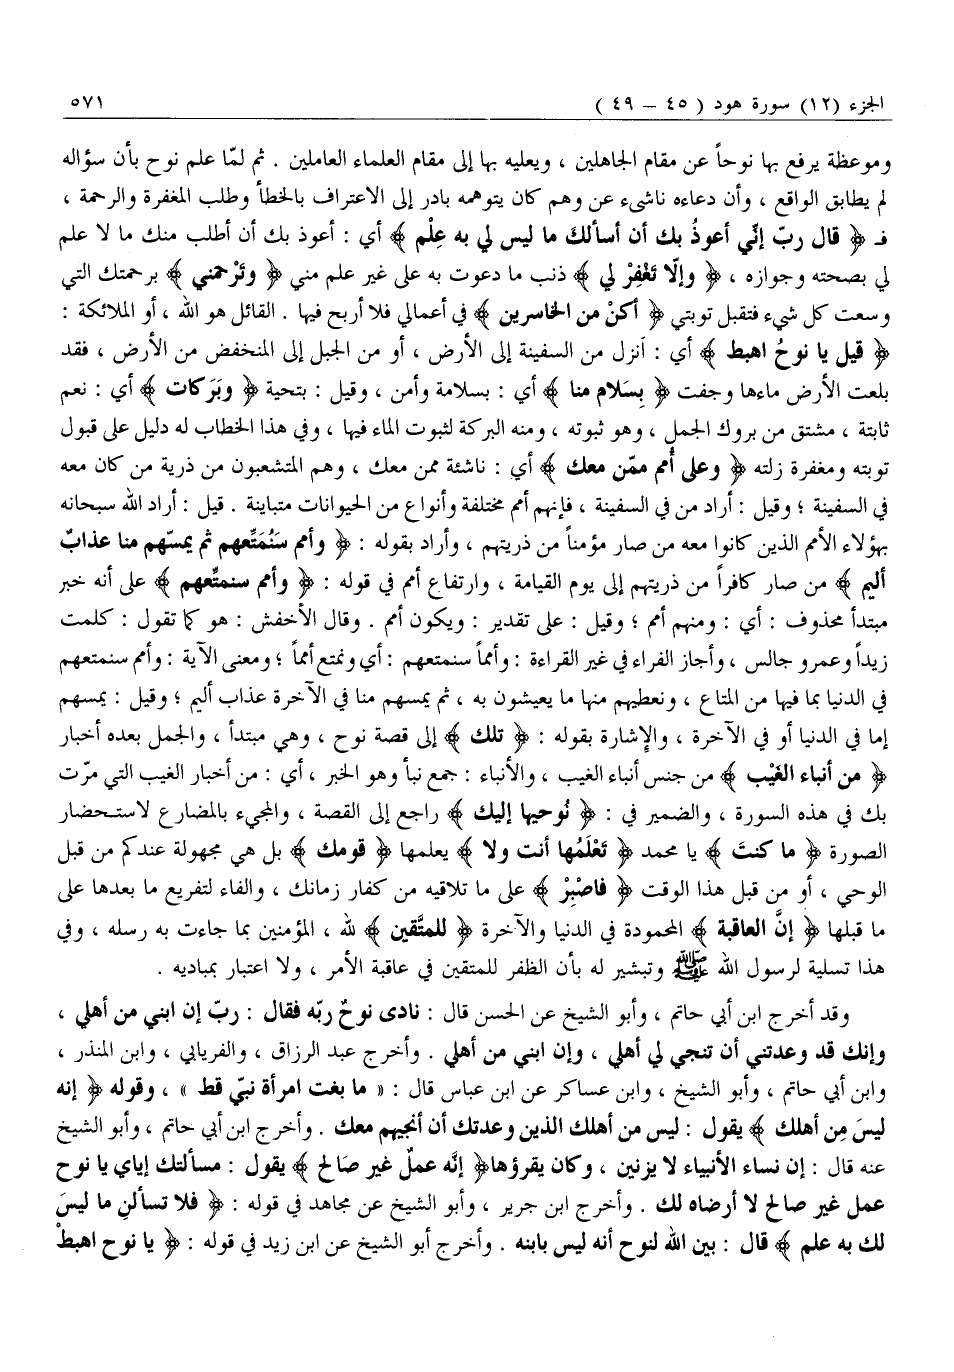 الجزء (١٢) سورة هود ( ٤٥ – ٤٩ ) ٥٧١
وموعظة يرفع بها نوحاً عن مقام الجاهلين ، ويعليه بها إلى مقام العلماء العاملين . ثم لمّا علم نوح بأن سؤاله
لم يطابق الواقع ، وأن دعاءه ناشىء عن وهم كان يتوهمه بادر إلى الاعتراف بالخطأ وطلب المغفرة والرحمة ،
فـ ﴿ قال ربّ إنّي أعوذُ بك أن أسألكَ ما ليس لي به عِلْم ﴾ أي : أعوذ بك أن أطلب منك ما لا علم
لي بصحته وجوازه ، ﴿ وإلّا تَغْفِرْ لي ﴾ ذنب ما دعوت به على غير علم مني ﴿ وتَرْحمني ﴾ برحمتك التي
وسعت كل شيء فتقبل توبتي ﴿ أكنْ من الخاسرين ﴾ في أعمالي فلا أربح فيها . القائل هو الله ، أو الملائكة :
﴿ قيل يا نوحُ اهبط ﴾ أي : اَنزل من السفينة إلى الأرض ، أو من الجبل إلى المنخفض من الأرض ، فقد
بلعت الأرض ماءها وجفت ﴿ بِسَلام منا ﴾ أي : بسلامة وأمن ، وقيل : بتحية ﴿ وبَرَكات ﴾ أي : نعم
ثابتة ، مشتق من بروك الجمل ، وهو ثبوته ، ومنه البركة لثبوت الماء فيها ، وفي هذا الخطاب له دليل على قبول
توبته ومغفرة زلته ﴿ وعلى أُمم ممّن معك ﴾ أي : ناشئة ممن معك ، وهم المتشعبون من ذرية من كان معه
في السفينة ؛ وقيل : أراد من في السفينة ، فإنهم أمم مختلفة وأنواع من الحيوانات متباينة . قيل : أراد الله سبحانه
بهؤلاء الأمم الذين كانوا معه من صار مؤمناً من ذريتهم ، وأراد بقوله : ﴿ وأمم سَنُمَتِّعهم ثم يمسّهم منا عذابٌ
أليم ﴾ من صار كافراً من ذريتهم إلى يوم القيامة ، وارتفاع أمم في قوله : ﴿ وأمم سنمتِّعهم ﴾ على أنه خبر
مبتدأ محذوف : أي : ومنهم أمم ؛ وقيل : على تقدير : ويكون أمم . وقال الأخفش : هو كما تقول : كلمت
زيداً وعمرو جالس ، وأجاز الفراء في غير القراءة : وأمماً سنمتعهم : أي ونمتع أمماً ؛ ومعنى الآية : وأمم سنمتعهم
في الدنيا بما فيها من المتاع ، ونعطيهم منها ما يعيشون به ، ثم يمسهم منا في الآخرة عذاب أليم ؛ وقيل : يمسهم
إما في الدنيا أو في الآخرة ، والإشارة بقوله : ﴿ تلك ﴾ إلى قصة نوح ، وهي مبتدأ ، والجمل بعده أخبار
﴿ من أنباء الغَيْب ﴾ من جنس أنباء الغيب ، والأنباء : جمع نبأ وهو الخبر ، أي : من أخبار الغيب التي مرّت
بك في هذه السورة ، والضمير في : ﴿ نُوحيها إليك ﴾ راجع إلى القصة ، والمجيء بالمضارع لاستحضار
الصورة ﴿ ما كنتَ ﴾ يا محمد ﴿ تَعْلَمُها أنت ولا ﴾ يعلمها ﴿ قومك ﴾ بل هي مجهولة عندكم من قبل
الوحي ، أو من قبل هذا الوقت ﴿ فاصْبِرْ ﴾ على ما تلاقيه من كفار زمانك ، والفاء لتفريع ما بعدها على
ما قبلها ﴿ إنَّ العاقبة ﴾ المحمودة في الدنيا والآخرة ﴿ للمتَّقين ﴾ لله ، المؤمنين بما جاءت به رسله ، وفي
هذا تسلية لرسول الله ﷺ وتبشير له بأن الظفر للمتقين في عاقبة الأمر ، ولا اعتبار بمباديه .
وقد أخرج ابن أبي حاتم ، وأبو الشيخ عن الحسن قال : نادى نوحٌ ربّه فقال : ربّ إن ابني من أهلي ،
وإنك قد وعدتني أن تنجي لي أهلي ، وإن ابني من أهلي . وأخرج عبد الرزاق ، والفريابي ، وابن المنذر ،
وابن أبي حاتم ، وأبو الشيخ ، وابن عساكر عن ابن عباس قال : « ما بغت امرأة نبّي قط » ، وقوله ﴿ إنه
ليسَ مِن أهلك ﴾ يقول : ليس من أهلك الذين وعدتك أن أنجيهم معك . وأخرج ابن أبي حاتم ، وأبو الشيخ
عنه قال : إن نساء الأنبياء لا يزنين ، وكان يقرؤها ﴿ إنَّه عملٌ غير صَالح ﴾ يقول : مسألتك إياي يا نوح
عمل غير صالح لا أرضاه لك . وأخرج ابن جرير ، وأبو الشيخ عن مجاهد في قوله : ﴿ فلا تسألنِ ما ليسَ
لك به علم ﴾ قال : بين الله لنوح أنه ليس بابنه . وأخرج أبو الشيخ عن ابن زيد في قوله : ﴿ يا نوح اهبطْ